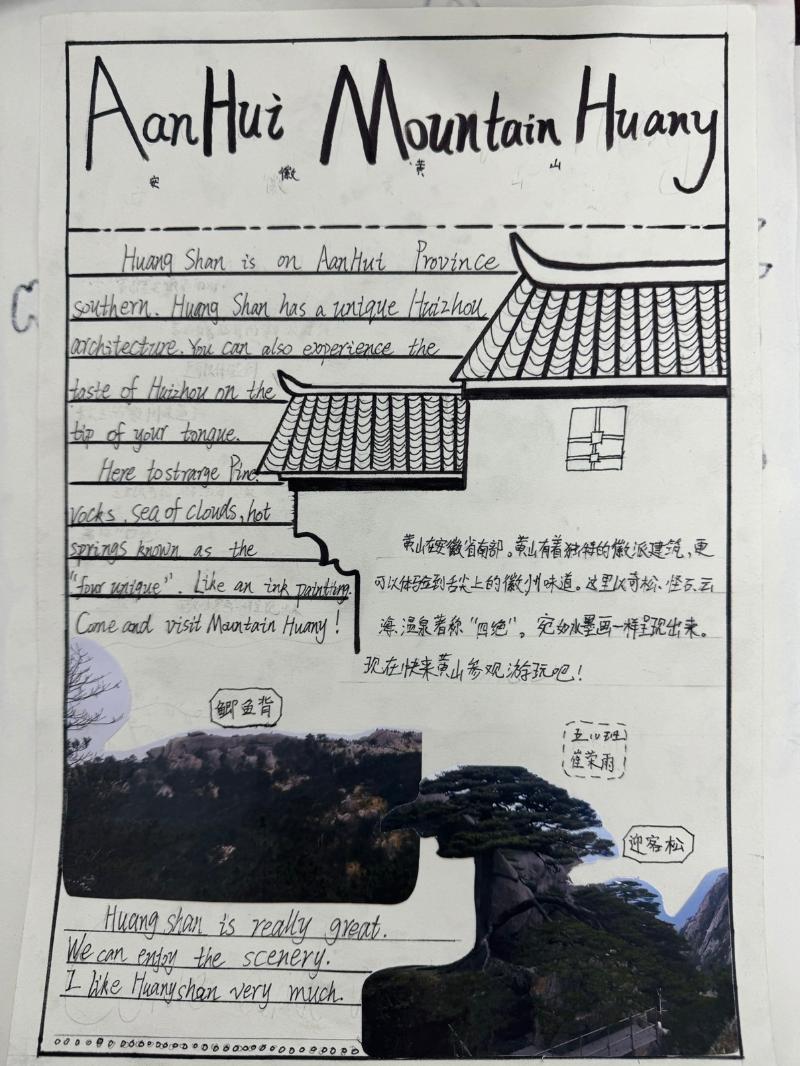 AanHui Mountain Huany
安 徽 黄 山
Huang Shan is on AanHui Province
southern. Huang Shan has a unique Huizhou
architecture. You can also experience the
taste of Huizhou on the
tip of your tongue.
Here to strarge Pine
vocks, sea of clouds, hot
springs known as the
"four unique". Like an ink painting.
Come and visit Mountain Huany!
黄山在安徽省南部。黄山有着独特的徽派建筑,更
可以体验到舌尖上的徽州味道。这里以奇松、怪石、云
海、温泉著称“四绝”。宛如水墨画一样呈现出来。
现在快来黄山参观游玩吧!
鲫鱼背
崔荣雨
迎客松
Huang shan is really great.
We can enjoy the scenery.
I like Huangshan very much.